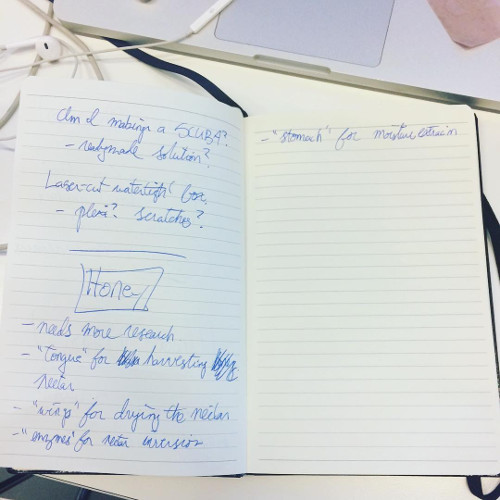 Am I making a SCUBA?
- readymade solution?
Laser-cut watertight box
- plexi? scratches?
Honey
- needs more research
- "tongue" for harvesting
nectar
- "wings" for drying the nectar
- "enzymes" for nectar inversion
- "stomach" for moisture